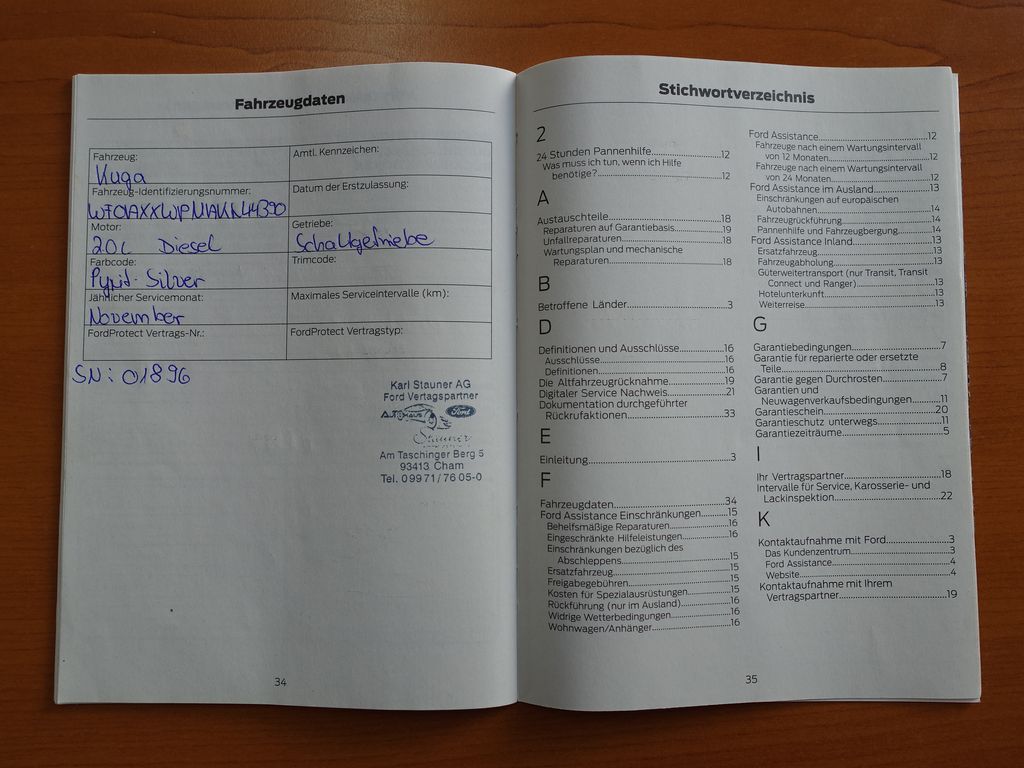 Fahrzeugdaten
Fahrzeug:
Kuga
Amtl. Kennzeichen:
Fahrzeug-Identifizierungsnummer:
Datum der Erstzulassung:
Motor:
2.0L Diesel
Getriebe:
Schaltgetriebe
Farbcode:
Pyrit-Silver
Trimcode:
Jährlicher Servicemonat:
November
Maximales Serviceintervalle (km):
FordProtect Vertrags-Nr.:
FordProtect Vertragstyp:
SN: 01896
Karl Stauner AG
Ford Vertagspartner
AUTOHAUS Ford
Stauner
Am Taschinger Berg 5
93413 Cham
Tel. 0 99 71 / 76 05-0
34
Stichwortverzeichnis
2
24 Stunden Pannenhilfe....12
Was muss ich tun, wenn ich Hilfe
benötige?....12
A
Austauschteile....18
Reparaturen auf Garantiebasis....19
Unfallreparaturen....18
Wartungsplan und mechanische
Reparaturen....18
B
Betroffene Länder....3
D
Definitionen und Ausschlüsse....16
Ausschlüsse....16
Definitionen....16
Die Altfahrzeugrücknahme....19
Digitaler Service Nachweis....21
Dokumentation durchgeführter
Rückrufaktionen....33
E
Einleitung....3
F
Fahrzeugdaten....34
Ford Assistance Einschränkungen....15
Behelfsmäßige Reparaturen....16
Eingeschränkte Hilfeleistungen....16
Einschränkungen bezüglich des
Abschleppens....15
Ersatzfahrzeug....15
Freigabegebühren....15
Kosten für Spezialausrüstungen....15
Rückführung (nur im Ausland)....16
Widrige Wetterbedingungen....16
Wohnwagen/Anhänger....16
Ford Assistance....12
Fahrzeuge nach einem Wartungsintervall
von 12 Monaten....12
Fahrzeuge nach einem Wartungsintervall
von 24 Monaten....12
Ford Assistance im Ausland....13
Einschränkungen auf europäischen
Autobahnen....14
Fahrzeugrückführung....14
Pannenhilfe und Fahrzeugbergung....14
Ford Assistance Inland....13
Ersatzfahrzeug....13
Fahrzeugabholung....13
Güterweitertransport (nur Transit, Transit
Connect und Ranger)....13
Hotelunterkunft....13
Weiterreise....13
G
Garantiebedingungen....7
Garantie für reparierte oder ersetzte
Teile....8
Garantie gegen Durchrosten....7
Garantien und
Neuwagenverkaufsbedingungen....11
Garantieschein....20
Garantieschutz unterwegs....11
Garantiezeiträume....5
I
Ihr Vertragspartner....18
Intervalle für Service, Karosserie- und
Lackinspektion....22
K
Kontaktaufnahme mit Ford....3
Das Kundenzentrum....3
Ford Assistance....4
Website....4
Kontaktaufnahme mit Ihrem
Vertragspartner....19
35